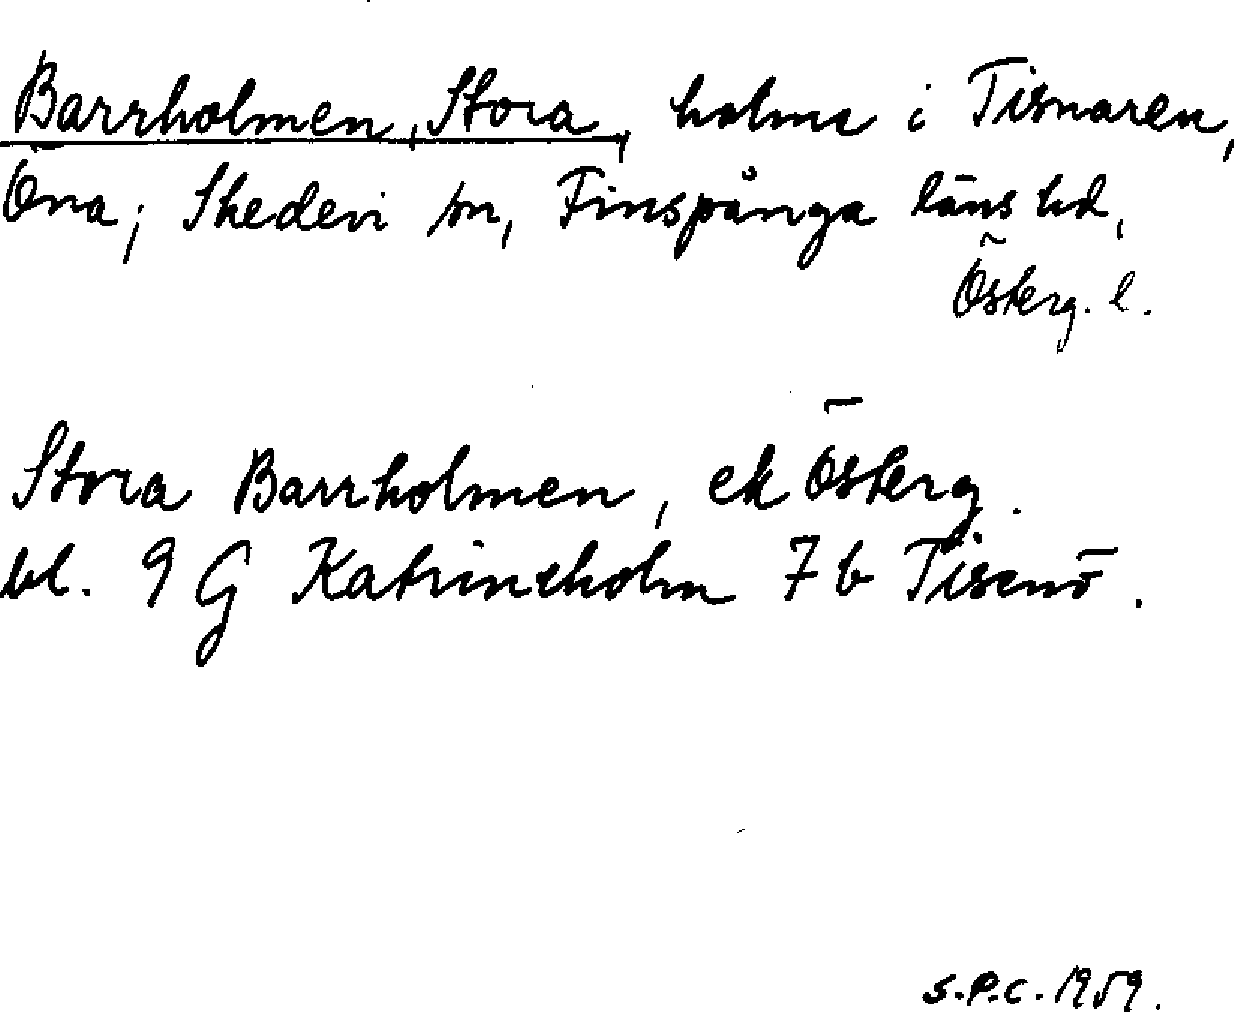 Barrholmen, Stora, holme i Tisnaren,
Öna, Skedevi sn, Finspånga läns hd,
Österg. l.
Stora Barrholmen, ek Österg.
bl. 9 G Katrineholm 7 b Tisenö.
S.P.C. 1959.